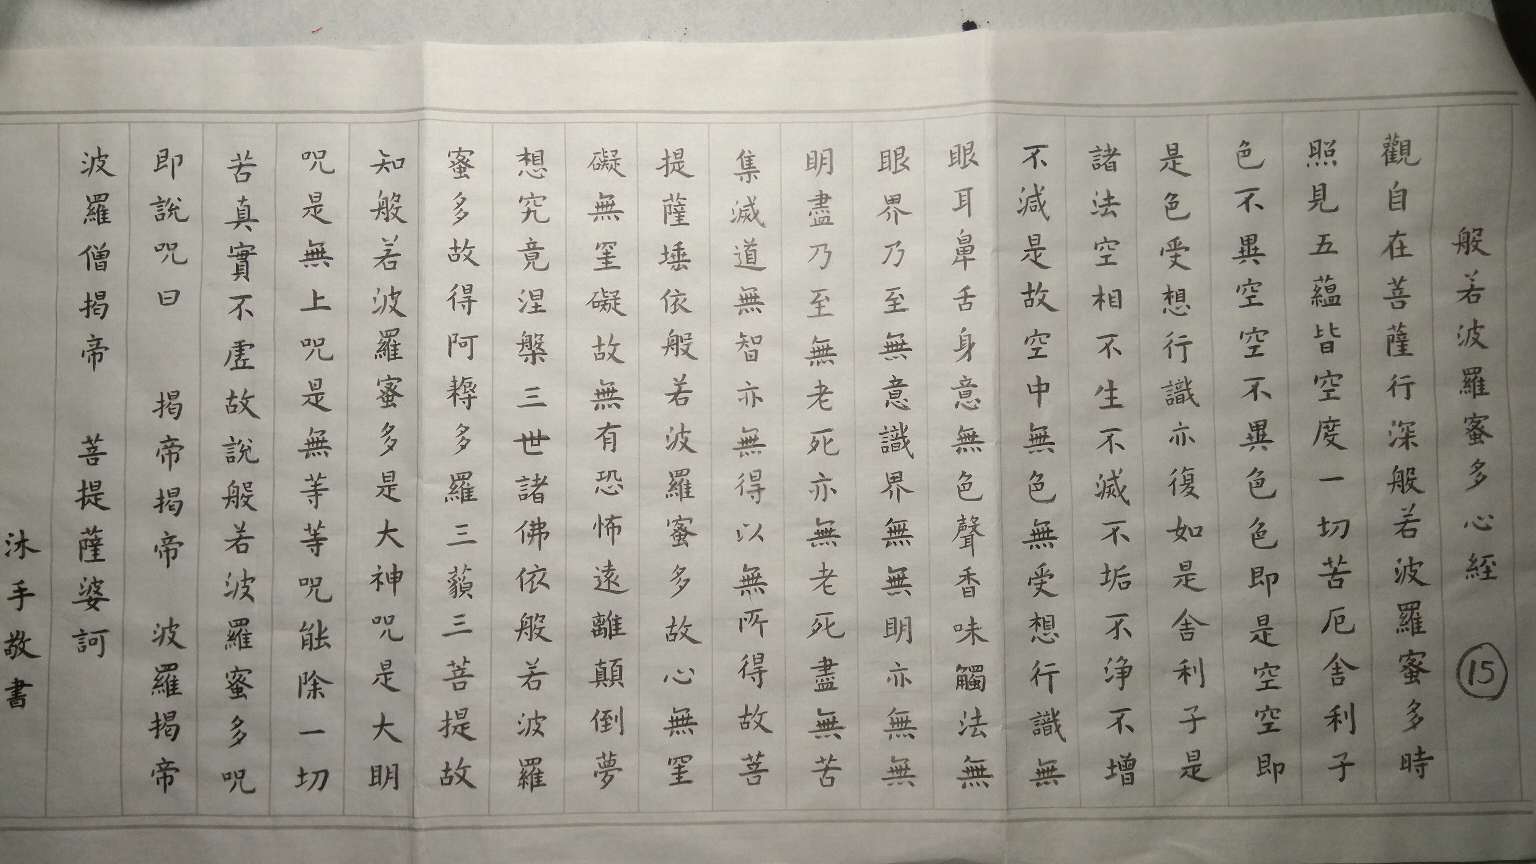 般若波羅蜜多心經 15
觀自在菩薩行深般若波羅蜜多時
照見五蘊皆空度一切苦厄舍利子
色不異空空不異色色即是空空即
是色受想行識亦復如是舍利子是
諸法空相不生不滅不垢不淨不增
不減是故空中無色無受想行識無
眼耳鼻舌身意無色聲香味觸法無
眼界乃至無意識界無無明亦無無
明盡乃至無老死亦無老死盡無苦
集滅道無智亦無得以無所得故菩
提薩埵依般若波羅蜜多故心無罣
礙無罣礙故無有恐怖遠離顛倒夢
想究竟涅槃三世諸佛依般若波羅
蜜多故得阿耨多羅三藐三菩提故
知般若波羅蜜多是大神咒是大明
咒是無上咒是無等等咒能除一切
苦真實不虛故說般若波羅蜜多咒
即說咒曰 揭帝揭帝 波羅揭帝
波羅僧揭帝 菩提薩婆訶
沐手敬書